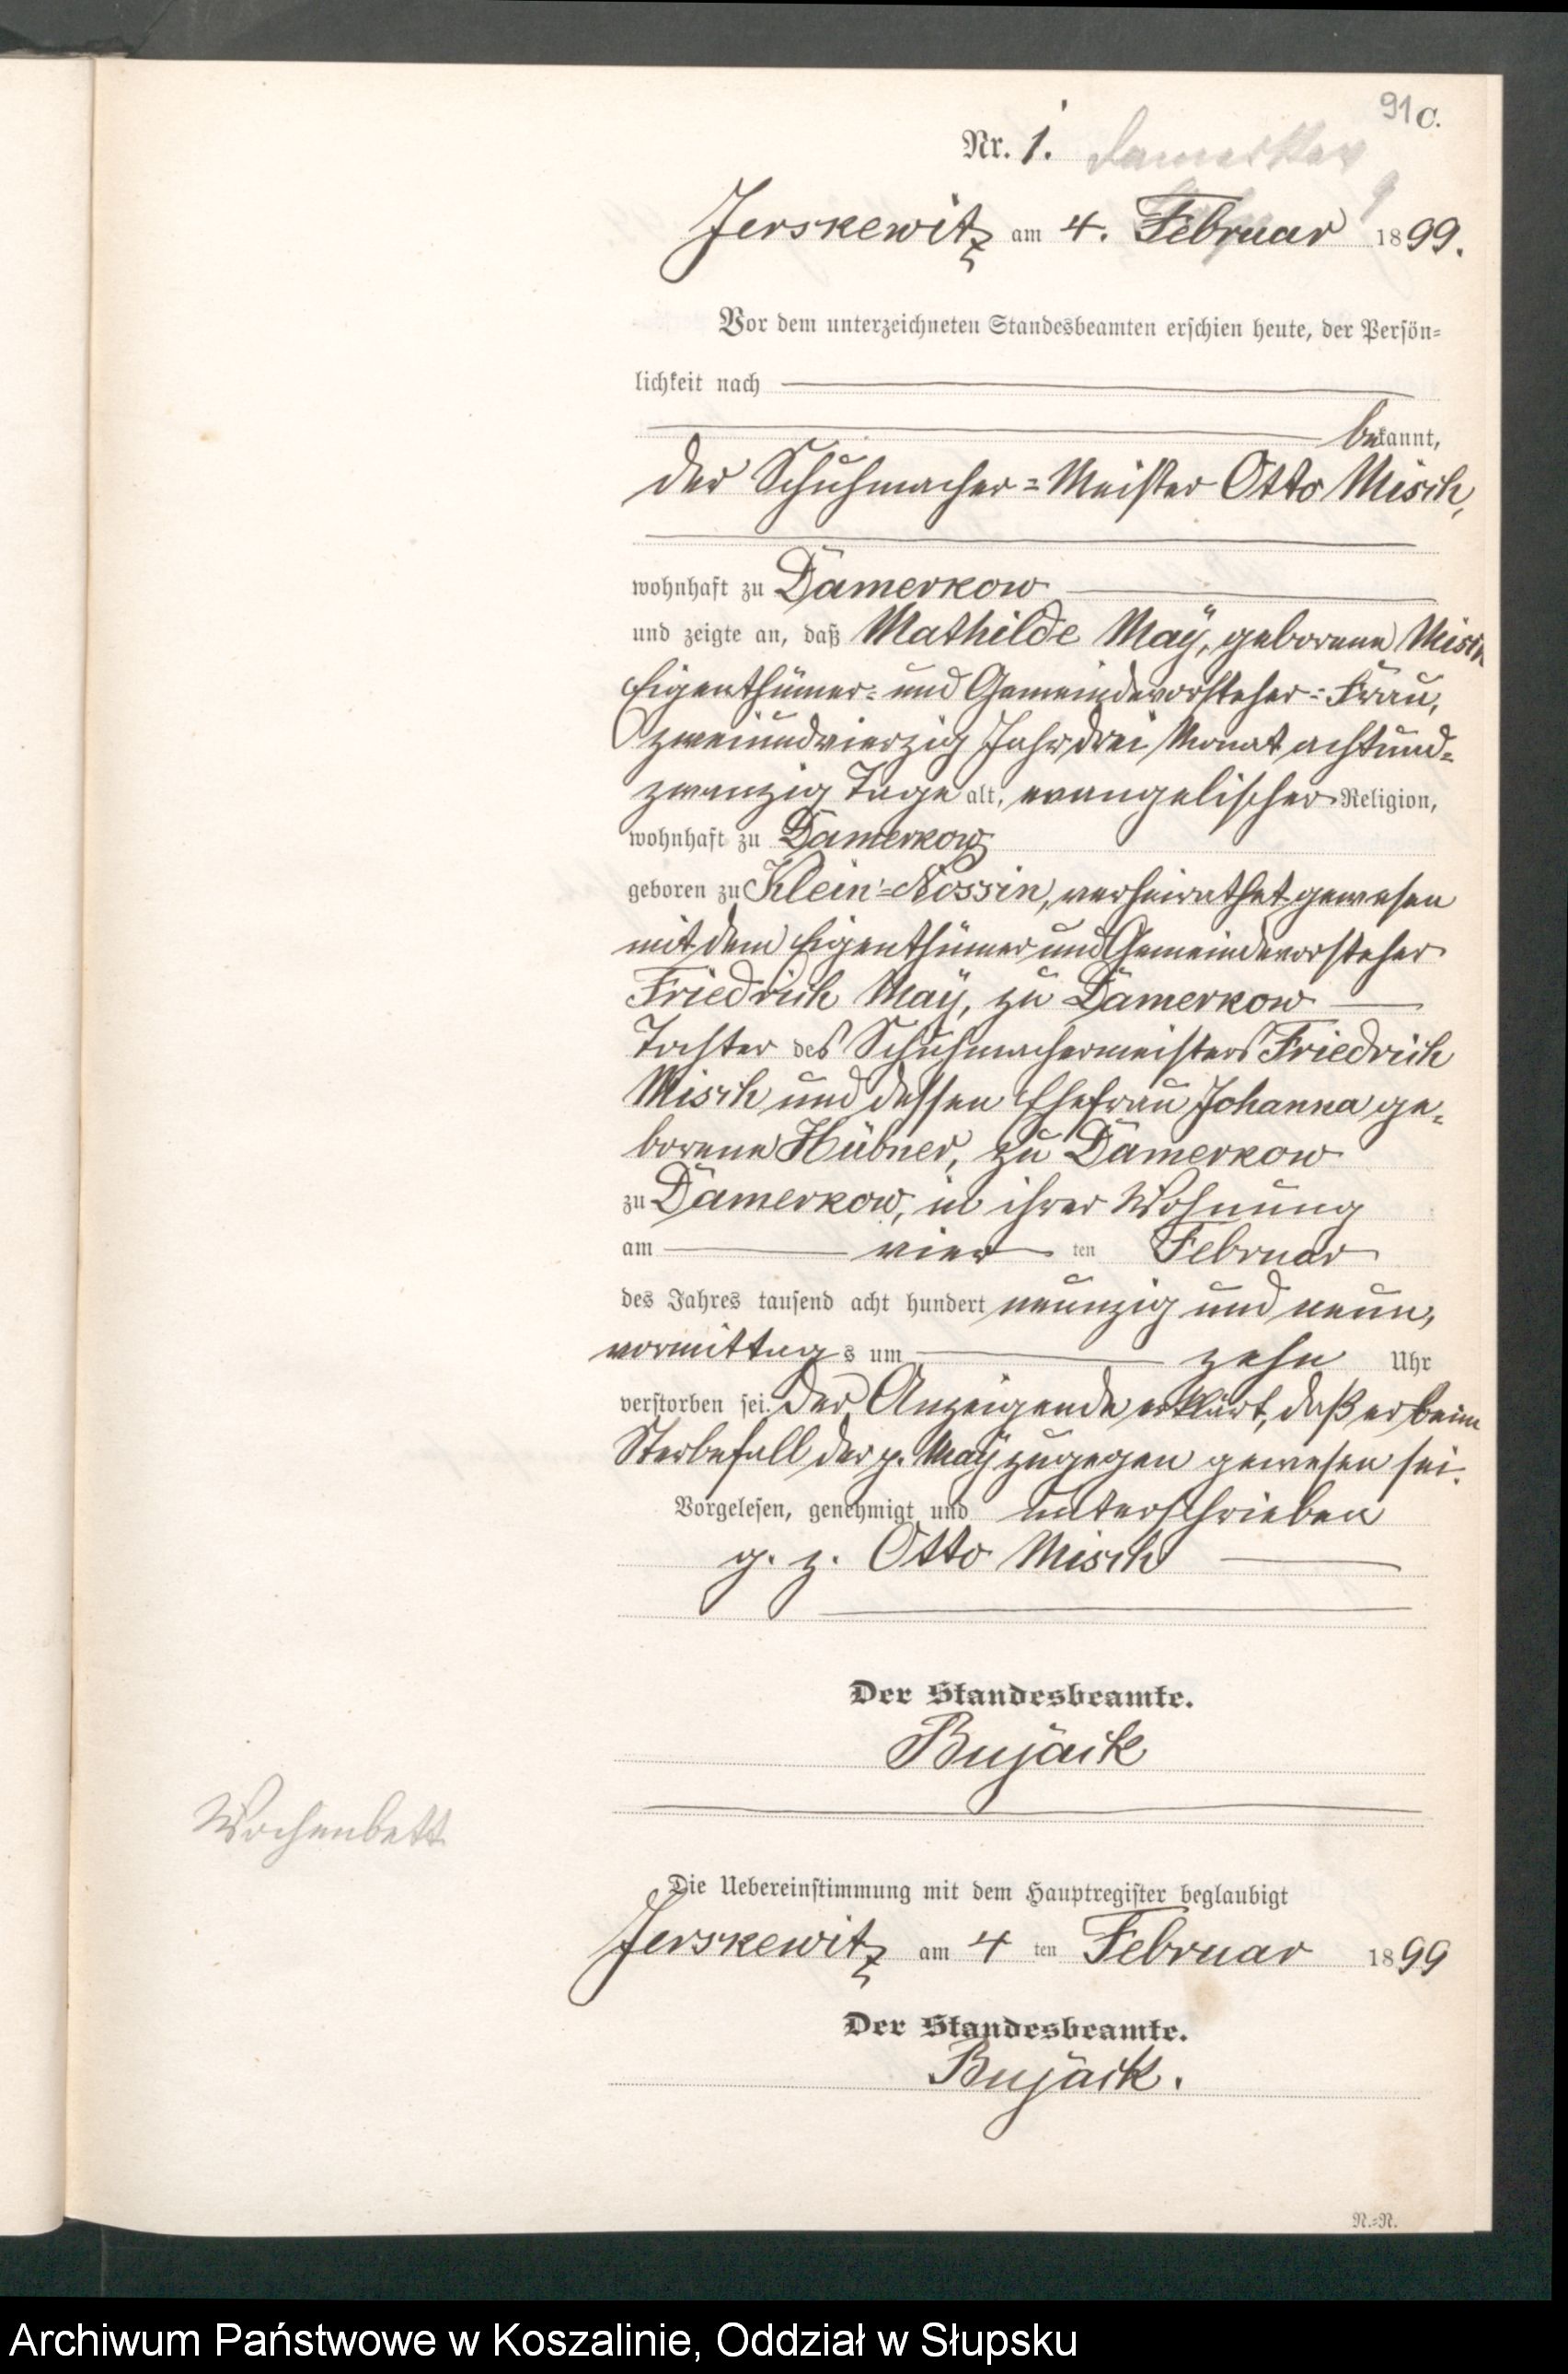 91 C.
Nr. 1. Damerkow
Jerskewitz am 4. Februar 1899.
Vor dem unterzeichneten Standesbeamten erschien heute, der Persön=
lichkeit nach
bekannt,
der Schuhmacher=Meister Otto Misch,
wohnhaft zu Damerkow
und zeigte an, daß Mathilde Maÿ, geborene Misch
Eigenthümer- und Gemeindevorsteher-Frau,
zweiundvierzig Jahr drei Monat achtund=
zwanzig Tage alt, evangelischer Religion,
wohnhaft zu Damerkow
geboren zu Klein=Nossin, verheirathet gewesen
mit dem Eigenthümer und Gemeindevorsteher
Friedrich Maÿ, zu Damerkow
Tochter des Schuhmachermeisters Friedrich
Misch und dessen Ehefrau Johanna ge=
borene Hübner, zu Damerkow
zu Damerkow, in ihrer Wohnung
am vier ten Februar
des Jahres tausend acht hundert neunzig und neun,
vormittags um zehn Uhr
verstorben sei. Der Anzeigende erklärt, daß er beim
Sterbefall der p. Maÿ zugegen gewesen sei.
Vorgelesen, genehmigt und unterschrieben
g. z. Otto Misch
Der Standesbeamte.
Bujack
Wochenbett
Die Uebereinstimmung mit dem Hauptregister beglaubigt
Jerskewitz am 4 ten Februar 1899
Der Standesbeamte.
Bujack.
N.=N.
Archiwum Państwowe w Koszalinie, Oddział w Słupsku